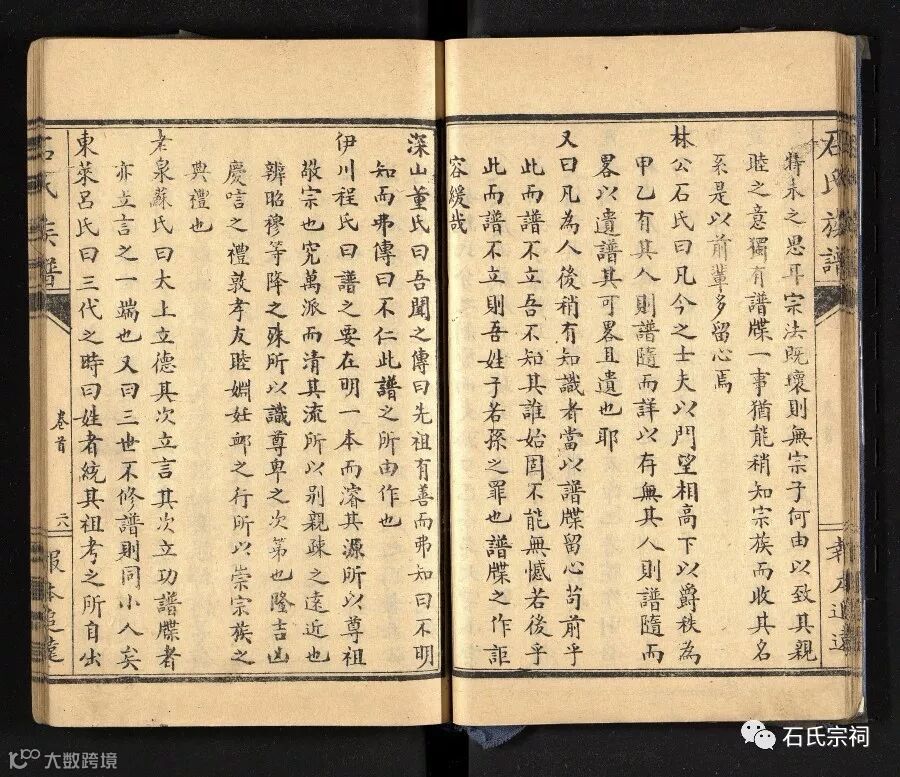 石氏族譜
特未之思耳宗法既壞則無宗子何由以致其親
睦之意獨有譜牒一事猶能稍知宗族而收其名
系是以前輩多留心焉
林公石氏曰凡今之士夫以門望相高下以爵秩為
甲乙有其人則譜隨而詳以存無其人則譜隨而
畧以遺譜其可畧且遺也耶
又曰凡為人後稍有知識者當以譜牒留心苟前乎
此而譜不立吾不知其誰始固不能無憾若後乎
此而譜不立則吾姓子若孫之罪也譜牒之作詎
容緩哉
深山董氏曰吾聞之傳曰先祖有善而弗知曰不明
知而弗傳曰不仁此譜之所由作也
伊川程氏曰譜之要在明一本而濬其源所以尊祖
敬宗也究萬派而清其流所以别親疎之遠近也
辨昭穆等降之殊所以識尊卑之次第也隆吉凶
慶唁之禮敦孝友睦婣妊卹之行所以崇宗族之
典禮也
老泉蘇氏曰太上立德其次立言其次立功譜牒者
亦立言之一端也又曰三世不修譜則同小人矣
東萊呂氏曰三代之時曰姓者統其祖考之所自出
石氏族譜
卷首
六
報本追遠
石氏宗祠
大数跨境